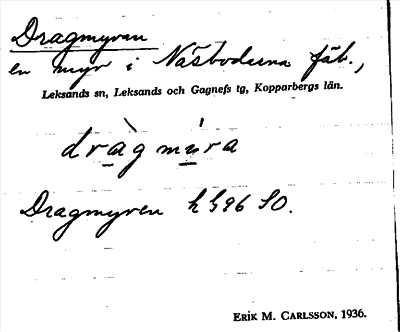 Dragmyran
en myr i Näsbodarna fäb.,
Leksands sn, Leksands och Gagnefs tg, Kopparbergs län.
dràg múra
Dragmyren h 596 SO.
ERIK M. CARLSSON, 1936.